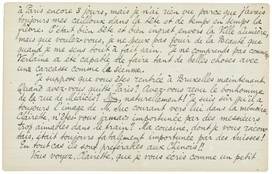 à Paris encore 3 jours, mais je n'ai rien vu parce que j'avais
toujours mes cailloux dans la tête et de temps en temps la
fièvre. C'était bien bête et bien ingrat envers la Ville Lumière,
mais que voulez-vous, je ne peux pas jouir de la Beauté que
quand je me sens tout à fait sain. Je ne comprends pas comment
Verlaine a été capable de faire tant de belles choses avec
une carcasse comme la sienne.
Je suppose que vous êtes rentrée à Bruxelles maintenant.
Quand avez-vous quitté Paris? Avez-vous revu le bonhomme
de la rue de Médicis? naturellement! Je suis sûr qu'il a
toujours l'image de la rue courant vers lui dans la mémoire
Clairette, n'êtes-vous jamais importunée par des messieurs
trop aimables dans le train? Ma cousine, dont je vous racon-
tais, était toujours fatalement importunée par des Suisses!
En tout cas ils sont préférables aux Chinois!!
Vous voyez, Clairette, que je vous écris comme un petit